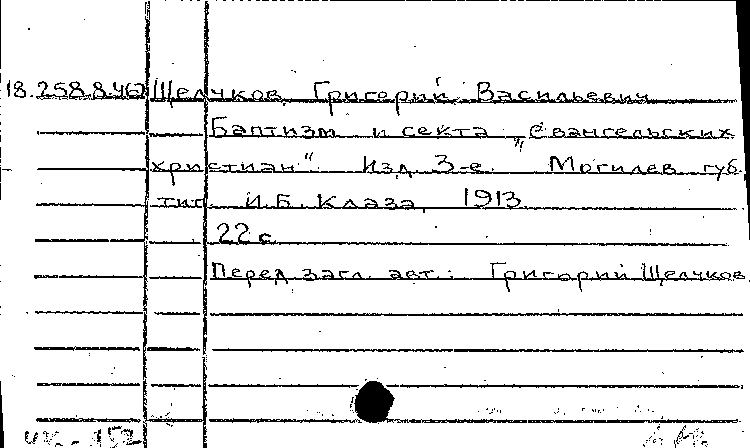 18.258.8.462 Щелчков, Григорий Васильевич
Баптизм и секта „Евангельских
христиан". Изд. 3-е. Могилев губ.
тип. И.Б. Клаза, 1913.
22 с.
Перед загл. авт.: Григорий Щелчков.